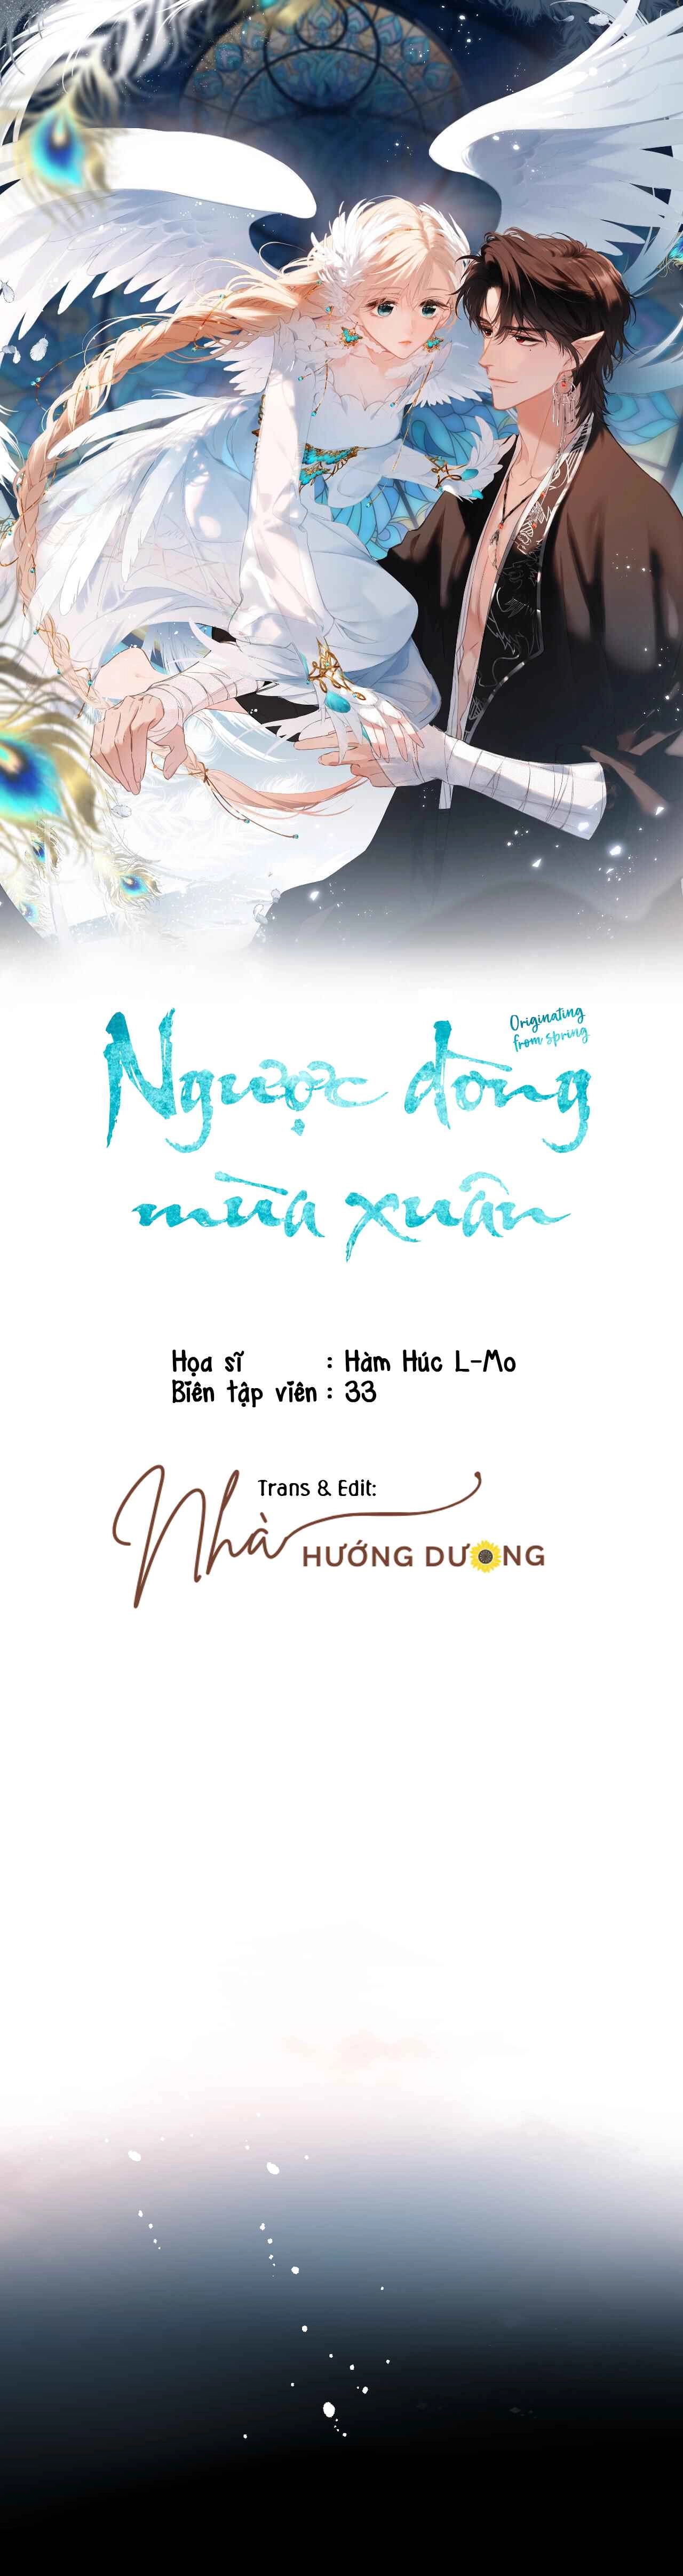 Originating
from spring
Ngược dòng
mùa xuân
Họa sĩ : Hàm Húc L-Mo
Biên tập viên : 33
Trans & Edit:
Nhà HƯỚNG DƯƠNG